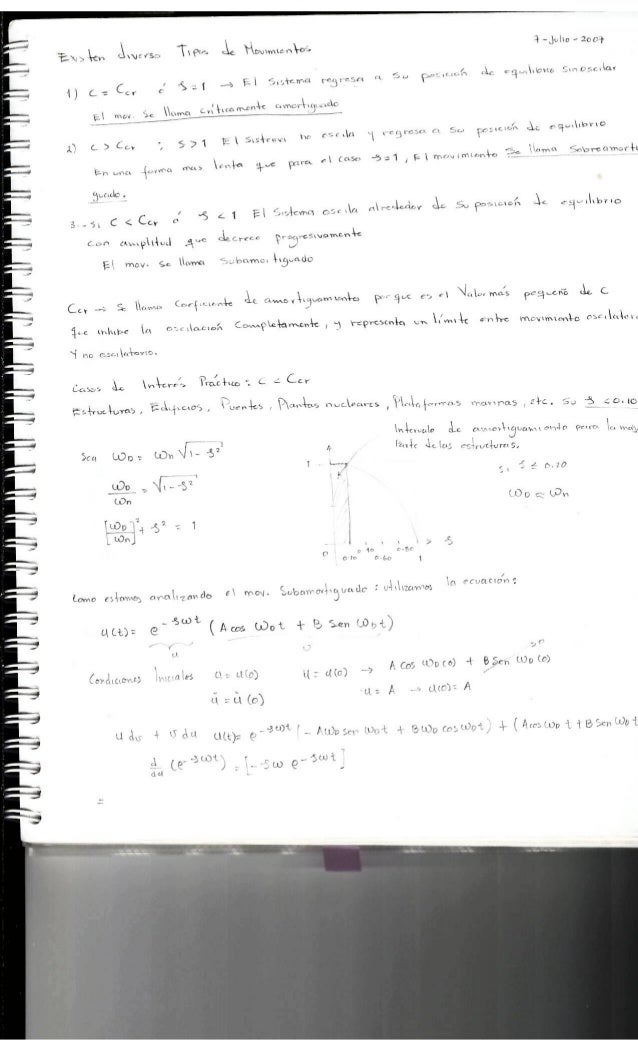 7-Julio-2007
Existen diverso Tipos de Movimientos
1) C = Ccr ó ξ=1 → El Sistema regresa a su posición de equilibrio sin oscilar
El mov. Se llama críticamente amortiguado
2) C > Ccr ; ξ>1 El Sistema no oscila y regresa a su posición de equilibrio
En una forma mas lenta que para el caso ξ=1, El movimiento Se llama Sobreamorti
guado.
3.- Si C < Ccr ó ξ < 1 El Sistema oscila alrededor de Su posición de equilibrio
con amplitud que decrece progresivamente
El mov. se llama Subamortiguado
Ccr → Se llama Coeficiente de amortiguamiento porque es el Valor más pequeño de C
que inhibe la oscilación Completamente, y representa un límite entre movimiento oscilatorio
Y no oscilatorio.
Casos de Interés Práctico: C < Ccr
Estructuras, Edificios, Puentes, Plantas nucleares, Plataformas marinas, etc. Su ξ ≤0.10
Intervalo de amortiguamiento para la may
parte de las estructuras.
Sea ωD = ωn √1-ξ²
Si ξ ≤ 0.20
ωD/ωn = √1-ξ²
ωD ≈ ωn
[ωD/ωn]² + ξ² = 1
1
0 0.10 0.60 0.80 1 ξ
Como estamos analizando el mov. Subamortiguado : utilizamos la ecuación:
u(t) = e^-ξωt (A cos ωDt + B Sen ωDt)
u v
Condiciones Iniciales u = u(0) u = u(0) → A cos ωD(0) + B Sen ωD(0)
u̇ = u̇(0) u = A → u(0) = A
u dv + v du u(t)= e^-ξωt (-AωD sen ωDt + BωD cos ωDt) + (A cos ωD t + B Sen ωD t
d/du (e^-ξωt) = [-ξω e^-ξωt]
=